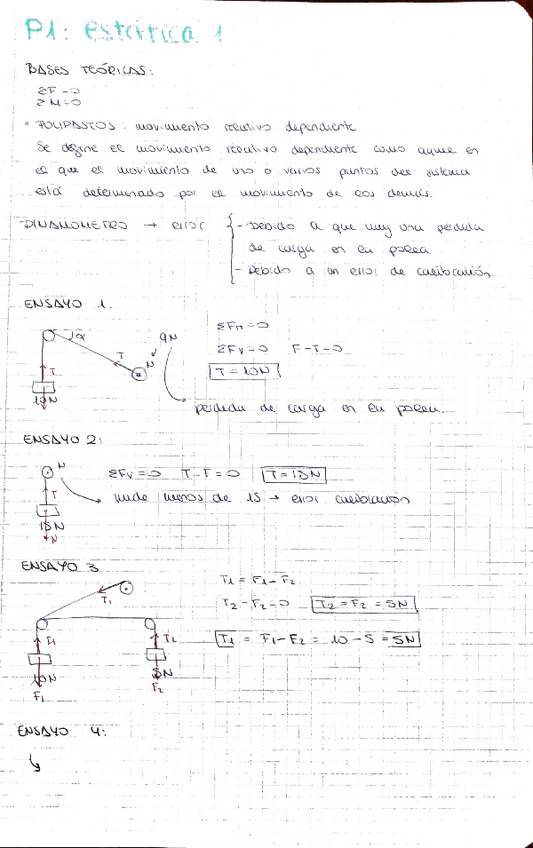 P1: estática 1
BASES TEÓRICAS:
ΣF=0
ΣM=0
• POLIPASTOS: movimiento relativo dependiente
Se define el movimiento relativo dependiente como aquel en
el que el movimiento de uno o varios puntos del sistema
está determinado por el movimiento de los demás.
DINAMOMETRO → error { - Debido a que hay una perdida
de carga en la polea
- Debido a un error de calibración
ENSAYO 1.
α
T
N
9N
T
10N
ΣFH=0
ΣFV=0 F-T=0
T=10N
perdida de carga en la polea.
ENSAYO 2:
N
T
15N
N
ΣFV=0 T-T=0 T=15N
mide menos de 15 → error calibración
ENSAYO 3
T1
T1
T2
10N
5N
F1
F2
T1 = F1-F2
T2-F2=0 T2=F2=5N
T1 = F1-F2 = 10-5 = 5N
ENSAYO 4: